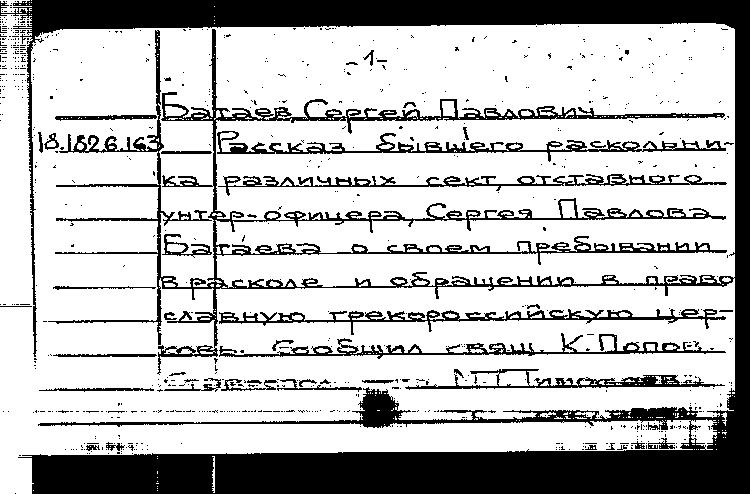 -1-
Батаев, Сергей Павлович
18.182.6.163 Рассказ бывшего раскольни-
ка различных сект, отставного
унтер-офицера, Сергея Павлова
Батаева о своем пребывании
в расколе и обращении в право
славную грекороссийскую цер-
ковь. Сообщил свящ. К. Попов.
Ставропол. Тимофеева